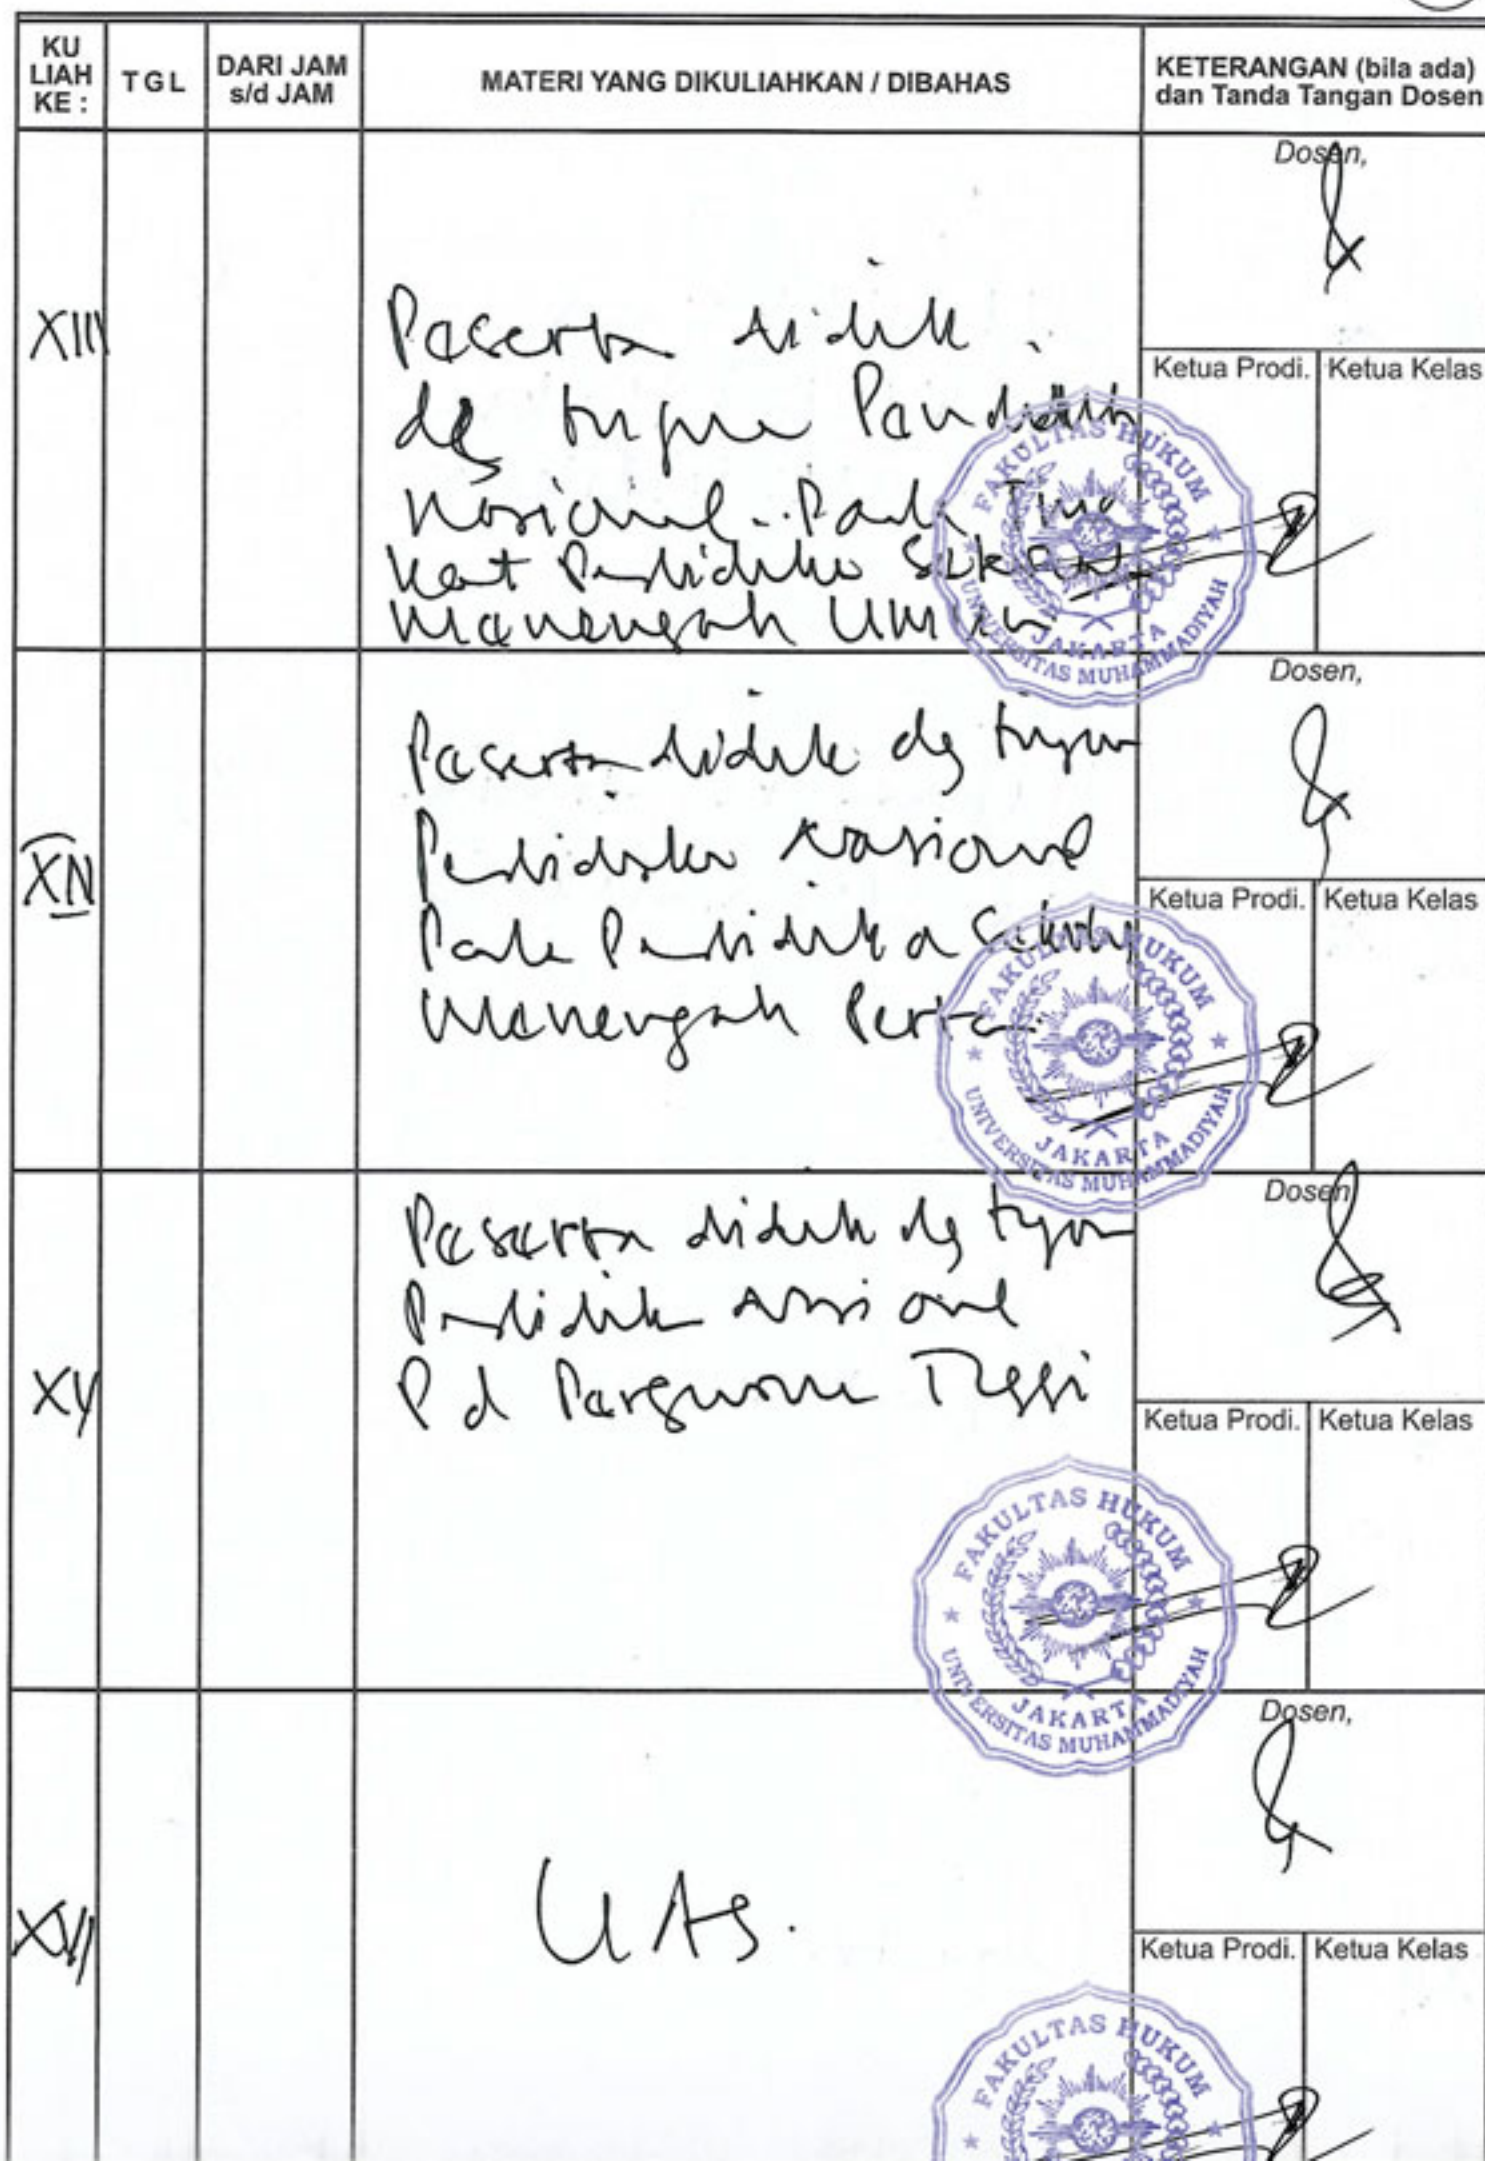 KU LIAH KE :
TGL
DARI JAM s/d JAM
MATERI YANG DIKULIAHKAN / DIBAHAS
KETERANGAN (bila ada) dan Tanda Tangan Dosen
XIII
Peserta didik
dg tujuan Pendidik
Nasional Pada Ting
kat Pendidika Sekolah
Menengah Umum
Dosen,
Ketua Prodi.
Ketua Kelas
FAKULTAS HUKUM
UNIVERSITAS MUHAMMADIYAH
JAKARTA
XIV
Peserta didik dg tujuan
Pendidika Nasional
Pada Pendidika Sekolah
Menengah Perta
Dosen,
Ketua Prodi.
Ketua Kelas
FAKULTAS HUKUM
UNIVERSITAS MUHAMMADIYAH
JAKARTA
XV
Peserta didik dg tujuan
Pendidik Nasional
Pd Perguruan Tinggi
Dosen,
Ketua Prodi.
Ketua Kelas
FAKULTAS HUKUM
UNIVERSITAS MUHAMMADIYAH
JAKARTA
XVI
UAS.
Dosen,
Ketua Prodi.
Ketua Kelas
FAKULTAS HUKUM